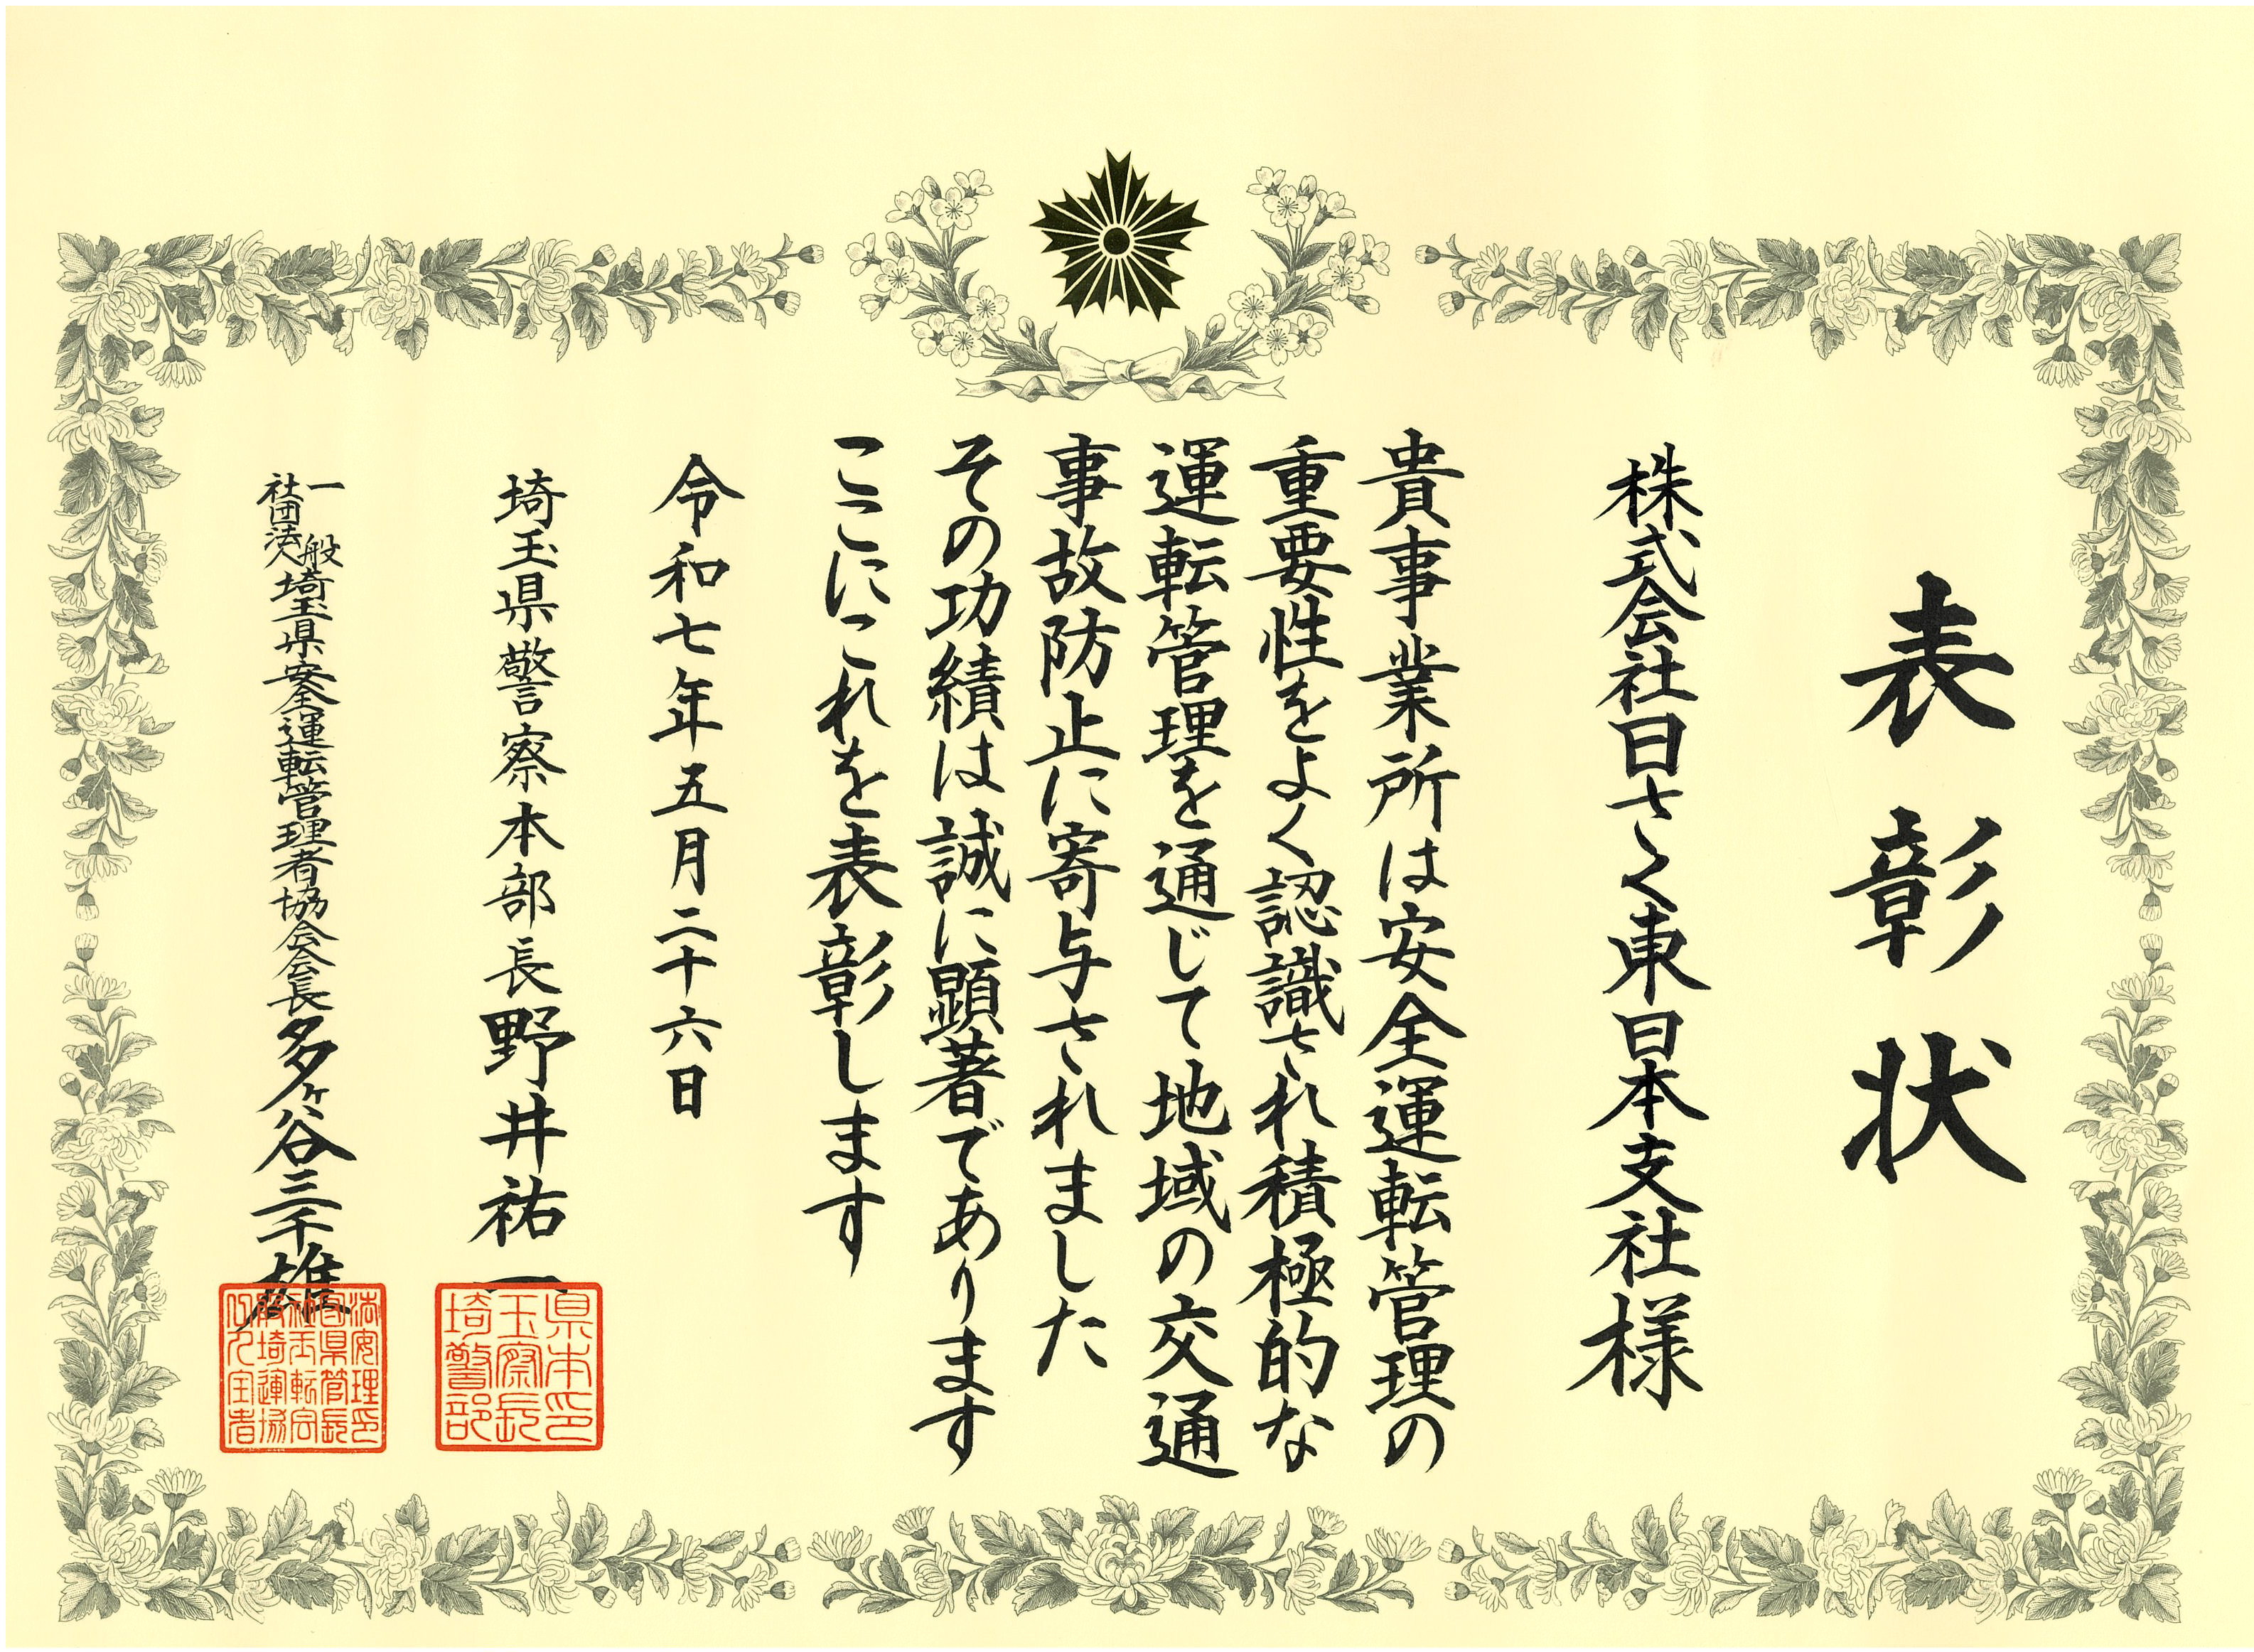 表彰状
株式会社日さく東日本支社様
貴事業所は安全運転管理の
重要性をよく認識され積極的な
運転管理を通じて地域の交通
事故防止に寄与されました
その功績は誠に顕著であります
ここにこれを表彰します
令和七年五月二十六日
埼玉県警察本部長野井祐一
一般社団法人埼玉県安全運転管理者協会会長多ヶ谷三千雄
埼玉県警察本部長印